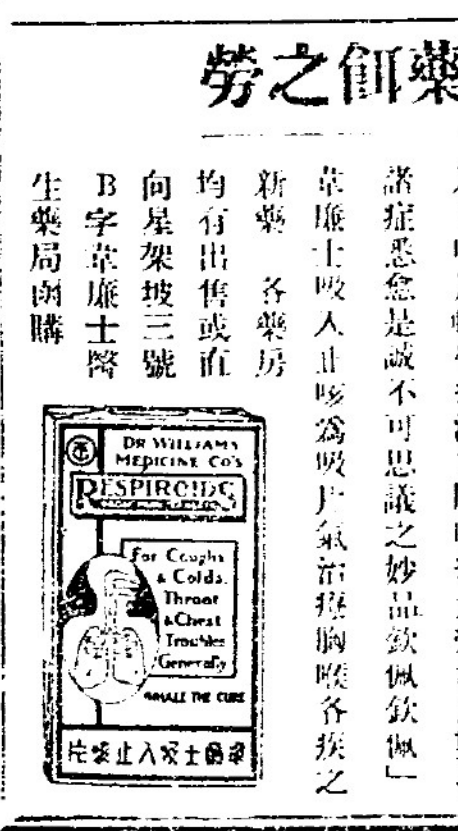 藥餌之勞
諸症悉愈是誠不可思議之妙品欽佩欽佩」
韋廉士吸入止咳為吸片氣治療胸喉各疾之
新藥 各藥房
均有出售或直
向星架坡三號
B字韋廉士醫
生藥局函購
DR WILLIAMS
MEDICINE CO'S
RESPIROIDS
For Coughs
& Colds.
Throat
& Chest
Troubles
Generally
INHALE THE CURE
韋廉士吸入止咳片